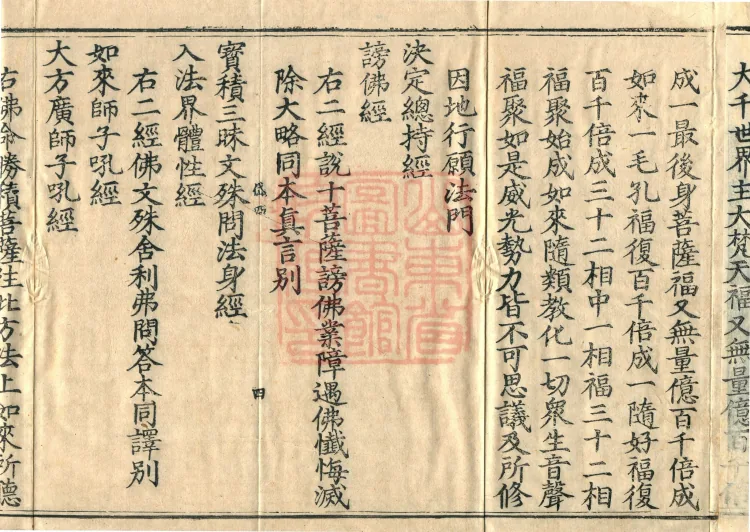 大千世界主大梵天福又無量億百千倍
成一最後身菩薩福又無量億百千倍成
如來一毛孔福復百千倍成一隨好福復
百千倍成三十二相中一相福三十二相
福聚始成如來隨類教化一切衆生音聲
福聚如是威光勢力皆不可思議及所修
因地行願法門
決定總持經
謗佛經
右二經說十菩薩謗佛業障遇佛懺悔滅
除大略同本眞言別
四
寶積三昧文殊問法身經
入法界體性經
右二經佛文殊舍利弗問答本同譯別
如來師子吼經
大方廣師子吼經
右佛令勝績菩薩往北方法上如來所